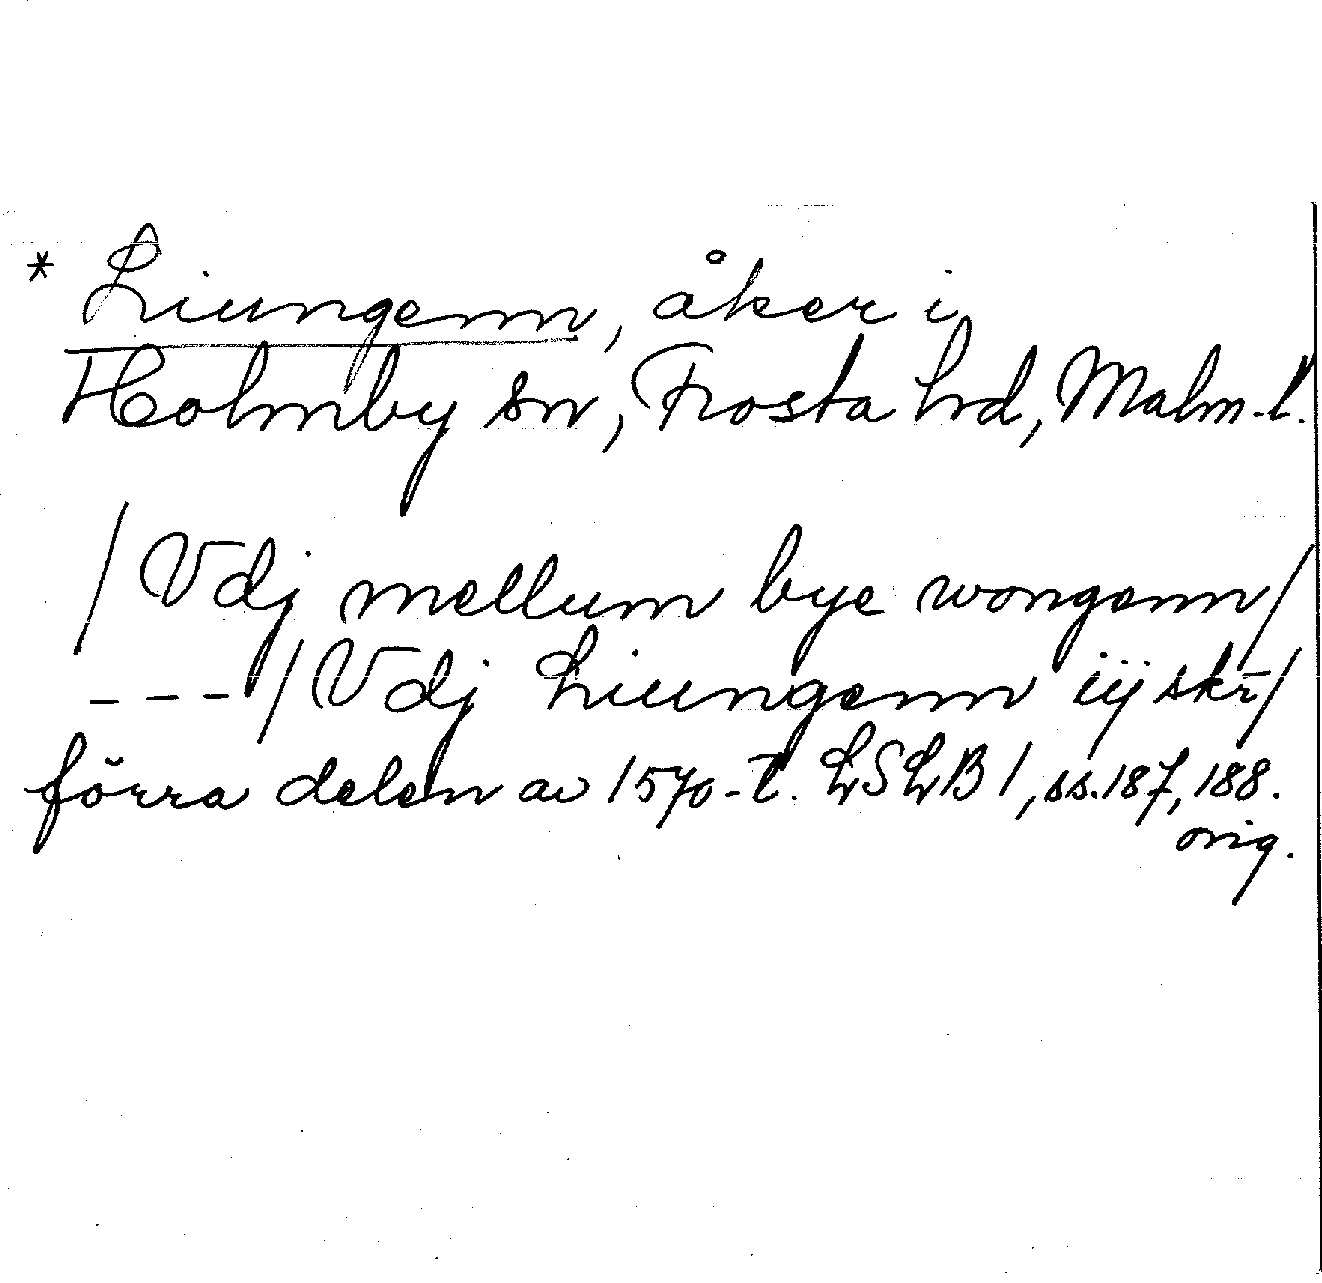 * Liungenn, åker i
Holmby sn, Frosta hd, Malm.l.
/Vdj mellum bye wongenn/
---/Vdj Liungenn iij skr/
förra delen av 1570-t. LSLB 1, ss.187, 188.
orig.